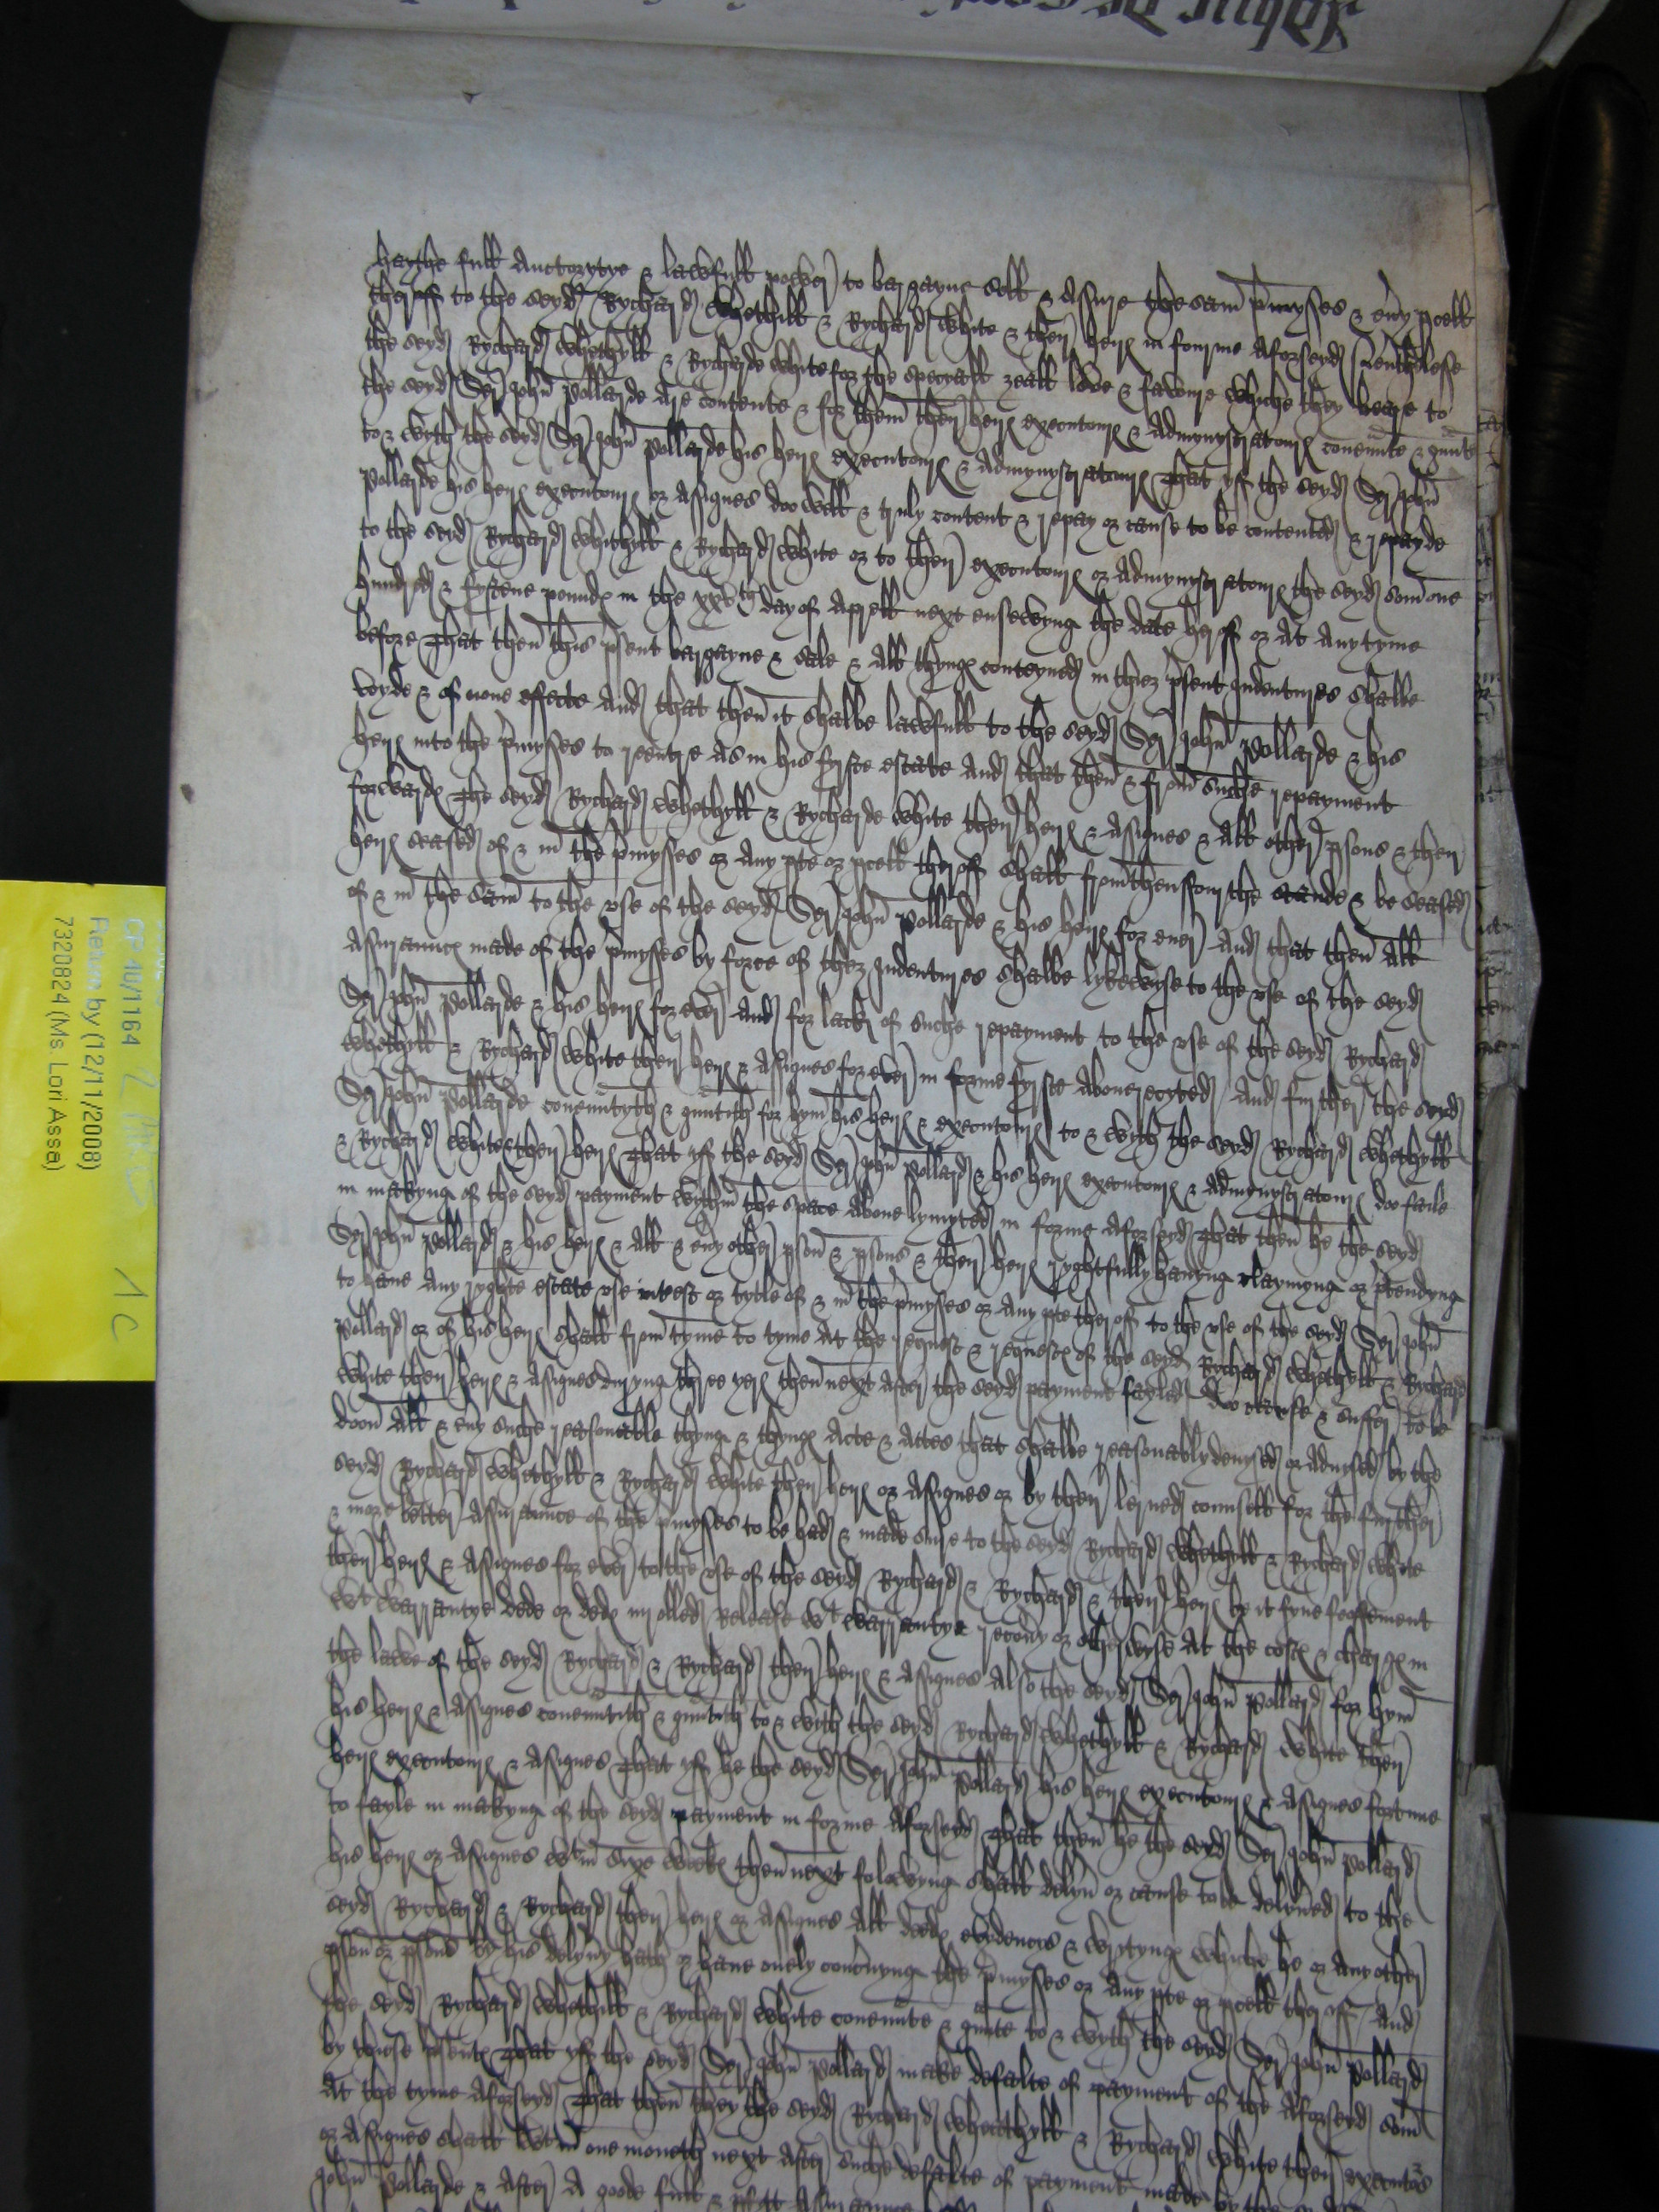 haythe full Auctorytye & lawfull power to bargayne sell & Assure the same pmysses & evy pcell
theroff to the seyd Rychard Whethill & Rychard White & their heires in fourme Aforseyd Neuthelesse
the seyd Rychard Whethyll & Rycharde White for the specyall zeall love & favoure whiche they beare to
the seyd Ser John Pollarde Are contente & for them their heires executours & Admynystratours covennte & gnnte
to & wyth the seyd Ser John Pollarde his heires executours & Admynystratours That yff the seyd Ser John
Pollarde his heires executours or Assignes doo well & truly content & repay or cause to be contented & repayde
to the seyd Rychard Whethyll & Rychard White or to their executours or Admynystratours the seyd som one
hundred & fystene pounds in the xxvth day of Aprell next ensewyng the date heroff or At Any tyme
before That then this psent bargayne & sale & All thynges conteyned in thiez psent Indentures shalbe
voyde & of none effecte And that then it shalbe lawfull to the seyd Ser John Pollarde & his
heires into the pmysses to reentre As in his fyrste estate And that then & from suche repayment
forwardes The seyd Rychard Whethyll & Rycharde White their heires & Assignes & All other psons & their
heires seased of & in the pmysses or Any pte or pcell theroff shall from thensfourthe stande & be seased
of & in the same to the use of the seyd Ser John Pollarde & his heires for ever And that then All
Assuraunces made of the pmysses by force of thez Indentures shalbe lykewyse to the use of the seyd
Ser John Pollarde & his heires for ever And for lack of suche repayment to the use of the seyd Rychard
Whethyll & Rychard White their heires & Assignes for ever in forme fyrste Above recyted And further the seyd
Ser John Pollarde covenntyth & gnntith for hym his heires & executours to & wyth the seyd Rychard Whethyll
& Rychard White & their heires That yff the seyd Ser John Pollard & his heires executours & Admynystratours doo faile
in makyng of the seyd payment wythin the space Above lymyted in forme Aforseyd That then he the seyd
Ser John Pollard & his heires & All & evy other pson & psons & their heires ryghtfully havyng claymyng or ptendyng
to have Any ryghte estate use interest or tytle of & in the pmysses or Any pte theroff to the use of the seyd Ser John
Pollard or of his heires shall from tyme to tyme At the request & requestes of the seyd Rychard Whethyll & Rychard
White their heires & Assignes duryng three yeres then next After the seyd payment fayled doo cause & suffer to be
doon All & evy suche reasonable thyng & thynges Acte & Actes that shalbe reasonably devysed or Advysed by the
seyd Rychard Whethyll & Rychard White their heires or Assignes or by their lerned counsell for the further
& more better Assuraunce of the pmysses to be had & made sure to the seyd Rychard Whethyll & Rychard White
their heires & Assignes for ever to the use of the seyd Rychard & Rychard & their heires be it fyne feoffement
wt warrantye dede or dedes inrolled Release wt warrantye recovy or otherwyse At the costes & charges in
the lawe of the seyd Rychard & Rychard their heires & Assignes Also the seyd Ser John Pollard for hym
his heires & Assignes covenntith & gnntith to & with the seyd Rychard Whethyll & Rychard White their
heires executours & Assignes That yff he the seyd Ser John Pollard his heires executours & Assignes fortune
to fayle in makyng of the seyd payment in forme Aforseyd That then he the seyd Ser John Pollard
his heires or Assignes wtin sixe wekes then next folowyng shall delyver or cause to be delyvered to the
seyd Rychard & Rychard their heires or Assignes All dedes evydences & wrytynges whiche he or Any other
pson or psons by his delyvy hath or have onely concnyng the pmysses or Any pte or pcell theroff And
the seyd Rychard Whethill & Rychard White covennte & gnnte to & wyth the seyd Ser John Pollard
by these psentes That yff the seyd Ser John Pollard make defalte of payment of the Aforseyd som
At the tyme Aforseyd That then they the seyd Rychard Wheathyll & Rychard White their executors
or Assignes shall wtin one moneth next After suche defalte of payment made by the
John Pollarde & After A goode full & pfitt Assuraunce
CP 40/1164
Return by (12/11/2008)
7320824 (Ms. Lori Assa)
1 C